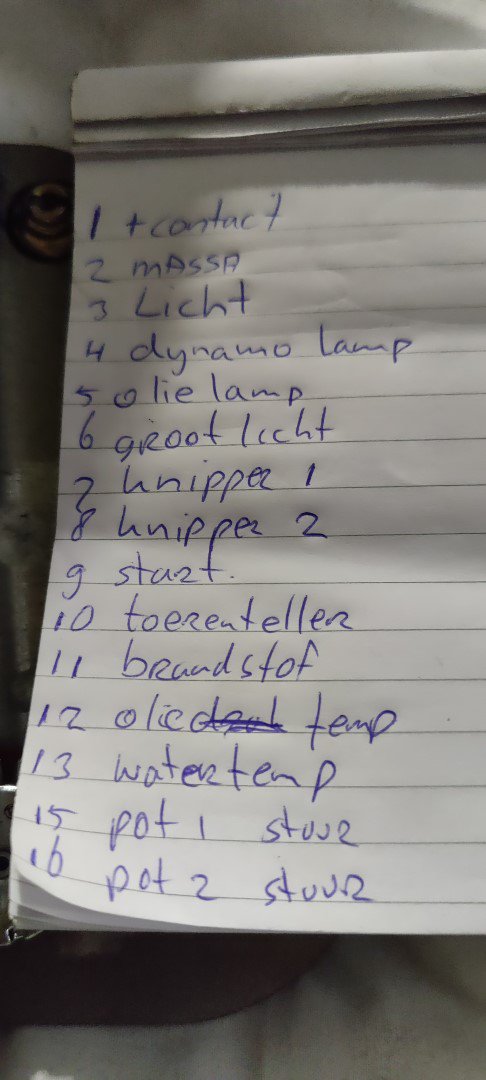 1 + contact
2 mASSA
3 Licht
4 dynamo lamp
5 olie lamp
6 groot licht
7 knipper 1
8 knipper 2
9 start.
10 toerenteller
11 brandstof
12 olie temp
13 watertemp
15 pot 1 stuur
16 pot 2 stuur